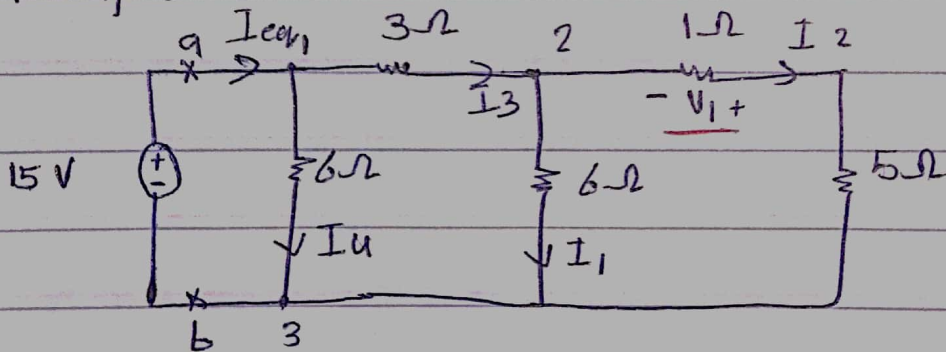 a Ieq1 3Ω 2 1Ω I2
I3 - V1 +
15 V + - 6Ω 6Ω 5Ω
I4 I1
b 3